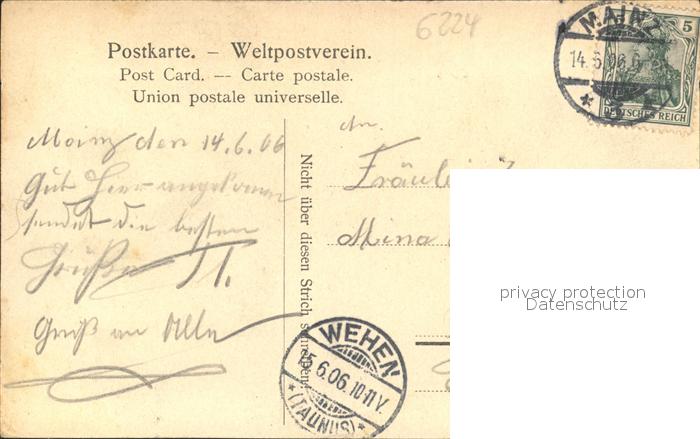 6224
Postkarte. – Weltpostverein.
Post Card. -- Carte postale.
Union postale universelle.
MAINZ
14.6.06.6-
5
DEUTSCHES REICH
Mainz den 14.6.06
Gut hier angekommen
sendet die besten
Grüße
Gruß an Alle
An.
Fräulein
Mina
Nicht über diesen Strich schreiben!
WEHEN
15.6.06.10-11V.
*(TAUNUS)*
privacy protection
Datenschutz